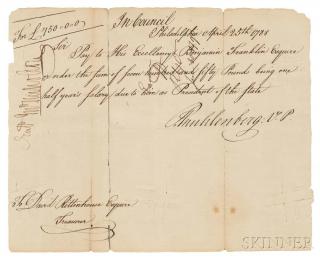 For £ 750-0-0
In Council
Philadelphia April 25th 1788
Sir
Pay to His Excellency Benjamin Franklin Esquire
or order the sum of seven hundred and fifty Pounds being one
half year's salary due to him as President of the state
P Muhlenberg. V. P
To David Rittenhouse Esquire
Treasurer
SKINNER